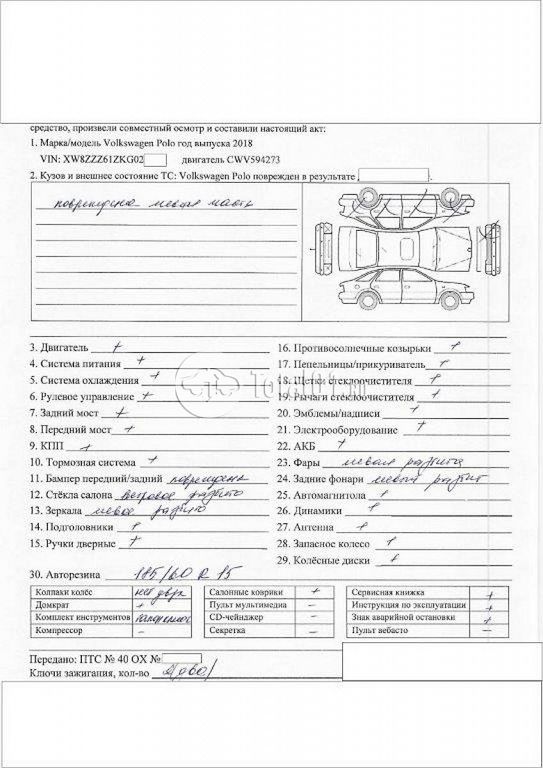 средство, произвели совместный осмотр и составили настоящий акт:
1. Марка/модель Volkswagen Polo год выпуска 2018
VIN: XW8ZZZ61ZKG02 двигатель CWV594273
2. Кузов и внешнее состояние ТС: Volkswagen Polo поврежден в результате
повреждена левая часть
3. Двигатель +
4. Система питания +
5. Система охлаждения +
6. Рулевое управление +
7. Задний мост +
8. Передний мост +
9. КПП +
10. Тормозная система +
11. Бампер передний/задний повреждены
12. Стёкла салона ветровое разбито
13. Зеркала левое разбито
14. Подголовники +
15. Ручки дверные +
16. Противосолнечные козырьки +
17. Пепельницы/прикуриватель +
18. Щетки стеклоочистителя +
19. Рычаги стеклоочистителя +
20. Эмблемы/надписи +
21. Электрооборудование +
22. АКБ +
23. Фары левая разбита
24. Задние фонари левый разбит
25. Автомагнитола +
26. Динамики +
27. Антенна +
28. Запасное колесо +
29. Колёсные диски +
30. Авторезина 185/60 R 15
Колпаки колёс нет
Домкрат +
Комплект инструментов
Компрессор –
Салонные коврики +
Пульт мультимедиа –
CD-чейнджер –
Секретка –
Сервисная книжка +
Инструкция по эксплуатации +
Знак аварийной остановки +
Пульт вебасто –
Передано: ПТС № 40 ОХ №
Ключи зажигания, кол-во
Total01.ru